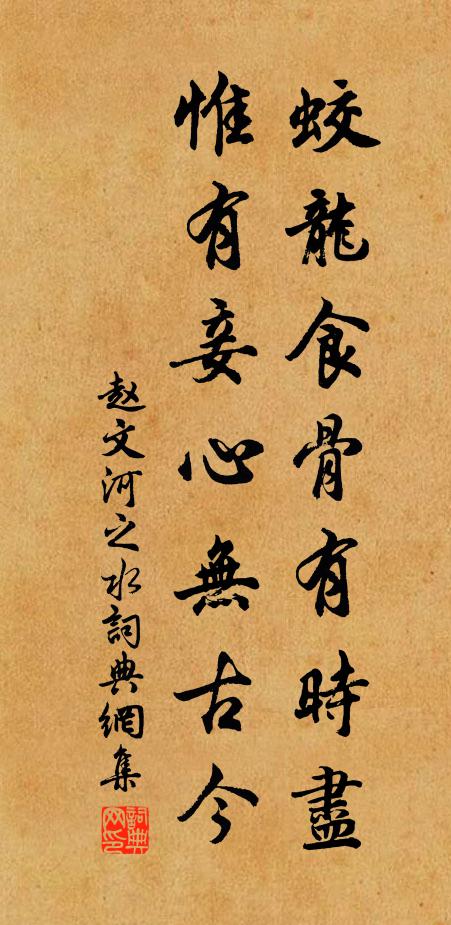 蛟龍食骨有時盡
惟有妾心無古今
赵文河之水詞典網集
詞典
网印